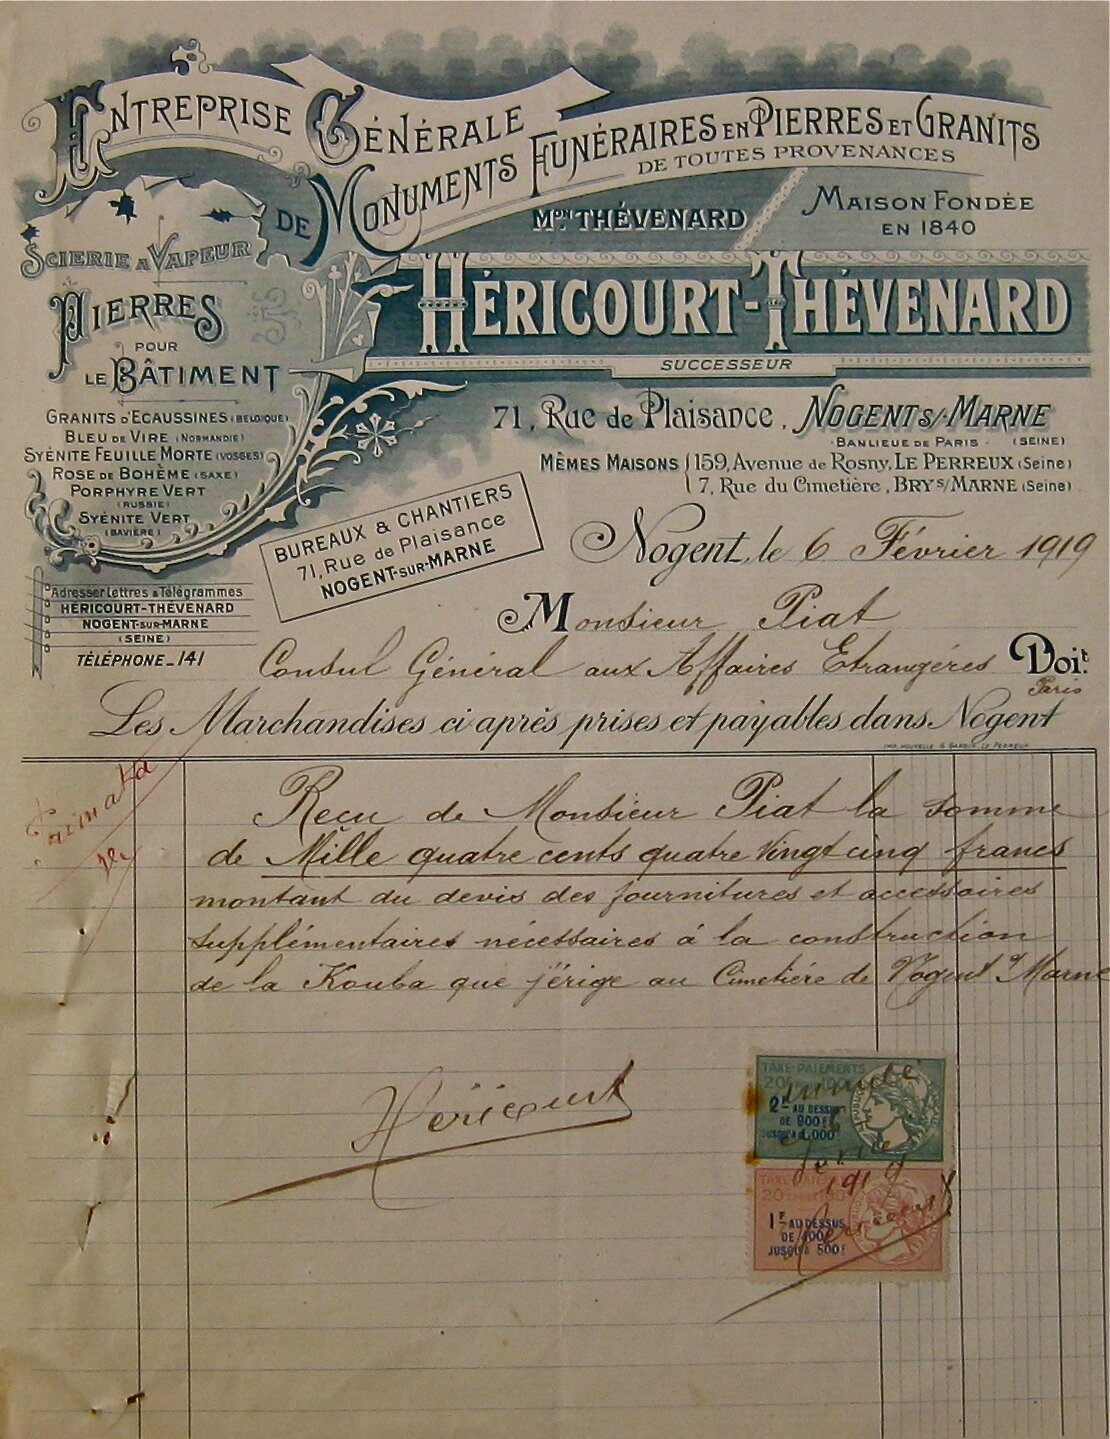 Entreprise Générale
de Monuments Funéraires en Pierres et Granits
de toutes provenances
Mon Thévenard
Maison Fondée
en 1840
Héricourt-Thévenard
Successeur
Scierie à Vapeur
Pierres
pour
le Bâtiment
Granits d'Ecaussines (Belgique)
Bleu de Vire (Normandie)
Syénite Feuille Morte (Vosges)
Rose de Bohême (Saxe)
Porphyre Vert
(Russie)
Syénite Vert
(Bavière)
71, Rue de Plaisance, Nogent s/-Marne
Banlieue de Paris - (Seine)
Mêmes Maisons 159, Avenue de Rosny, Le Perreux (Seine)
7, Rue du Cimetière, Bry s/Marne (Seine)
Bureaux & Chantiers
71, Rue de Plaisance
Nogent-sur-Marne
Adresser Lettres & Télégrammes
Héricourt-Thévenard
Nogent-sur-Marne
(Seine)
Téléphone_141
Nogent, le 6 Février 1919
Monsieur Piat
Consul Général aux Affaires Etrangères Doit.
Paris
Les Marchandises ci après prises et payables dans Nogent
Recu de Monsieur Piat la somme
de Mille quatre cents quatre vingt cinq francs
montant du devis des fournitures et accessoires
supplémentaires nécessaires à la construction
de la Kouba que j'érige au Cimetière de Nogent s/ Marne
Héricourt
TAXE-PAIEMENTS
2F AU DESSUS
DE 900F
JUSQU'A 1.000F
1919
TAXE-PAIEMENTS
1F AU DESSUS
DE 400F
JUSQU'A 500F
Héricourt